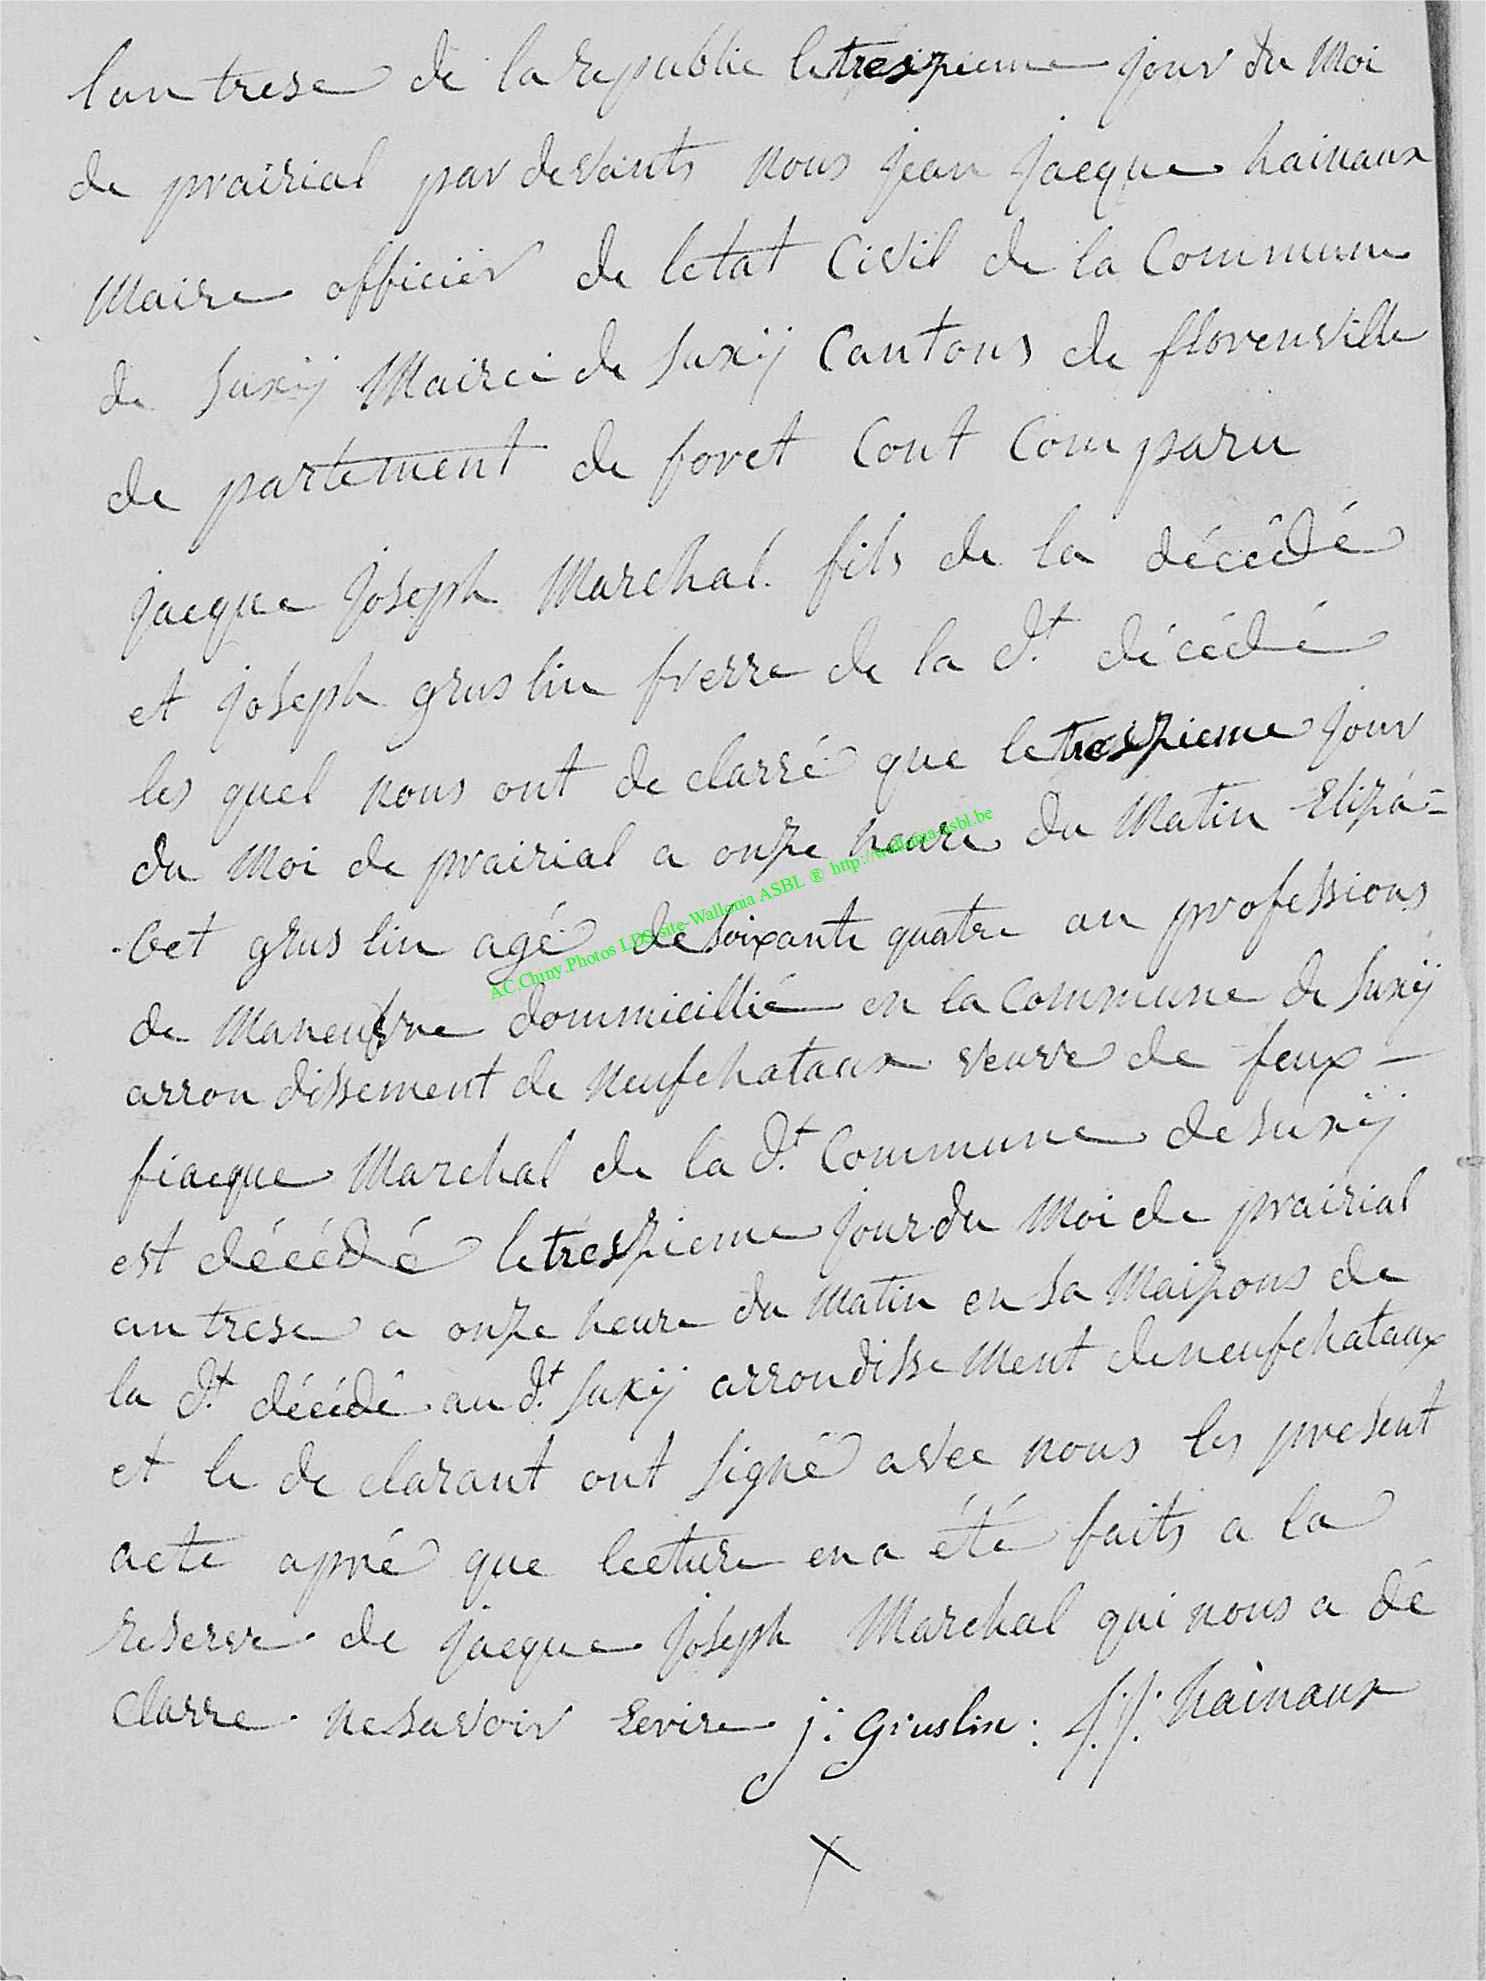 lan trese de la republic le tresizieme jour du Moi
de prairial par devants nous jean jacque hainaux
Maire officier de letat Civil de la Commune
de Suxÿ Mairei de Suxÿ Cantons de florenville
de partement de foret Cont Com paru
jacque joseph Marchal. fils de la décédé
et joseph gruslin frerre de la d.t décédé
les quel nous ont de clarré que le treszieme jour
du Moi de prairial a onze heure du Matin Eliza=
bet grus lin agé de soixante quatre an professions
de Maneuvre dommicillié en la Commune de Suxÿ
arron dissement de neufchataux veuve de feux —
fiacque Marchal de la d.t Commune de Suxÿ
est décédé le treszieme jour du Moi de prairial
an trese a onze heure du Matin en sa Maizons de
la d.t décédé au d.t Suxÿ arrondisse Ment de neufchataux
et le de clarant ont signé avec nous les present
acte apré que lecture en a été faits a la
reserve de jacque joseph Marchal qui nous a dé
Clarre ne savoir Ecrire j: Gruslin: J.J. hainaux
X
AC.Chiny.Photos LDS-site-Wallonia ASBL ® http://wallonia-asbl.be